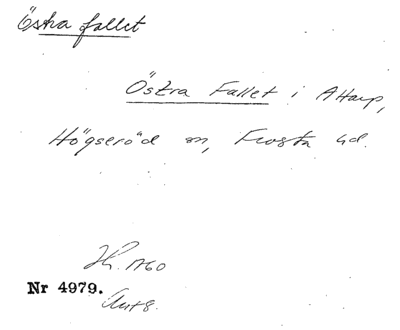 Östra fallet
Östra Fallet i Attarp,
Högseröd sn, Frosta hd.
H. 1760
Nr 4979.